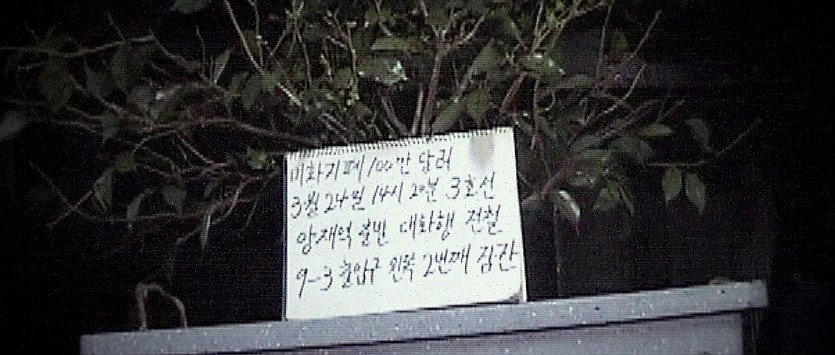 미화기폐 100만 달러
3월 24일 14시 20분 3호선
양재역 출발 대화행 전철
9-3 출입구 왼쪽 2번째 짐칸